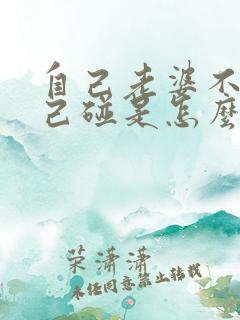 自己老婆不
己碰是怎麼
荣潇潇
未经同意禁止转载